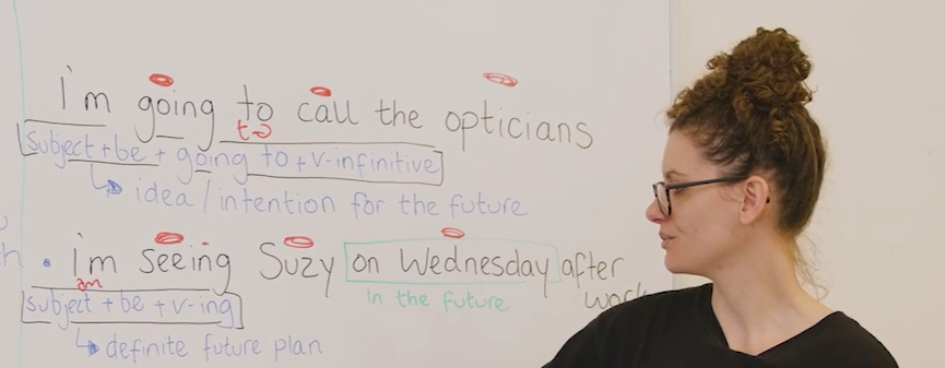 I'm going to call the opticians
tə
subject + be + going to + v-infinitive
idea / intention for the future
I'm seeing Suzy on Wednesday after
work
am
in the future
subject + be + v-ing
definite future plan